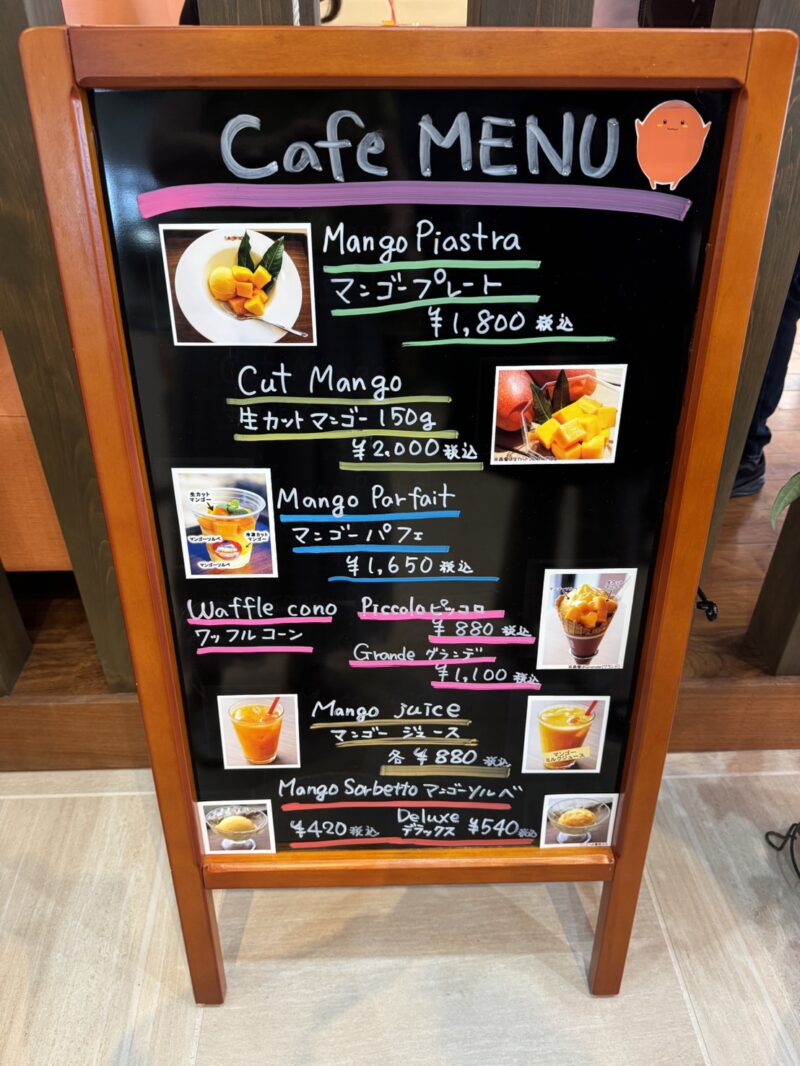 Cafe MENU
Mango Piastra
マンゴープレート
¥1,800 税込
Cut Mango
生カットマンゴー 150g
¥2,000 税込
生カット
マンゴー
マンゴーソルベ
冷凍カット
マンゴー
マンゴーソルベ
Mango Parfait
マンゴーパフェ
¥1,650 税込
Waffle cono
ワッフルコーン
Piccolo ピッコロ
¥880 税込
Grande グランデ
¥1,100 税込
Mango juice
マンゴー ジュース
各 ¥880 税込
マンゴー
ミルクジュース
Mango Sorbetto マンゴーソルベ
¥420 税込
Deluxe
デラックス
¥540 税込